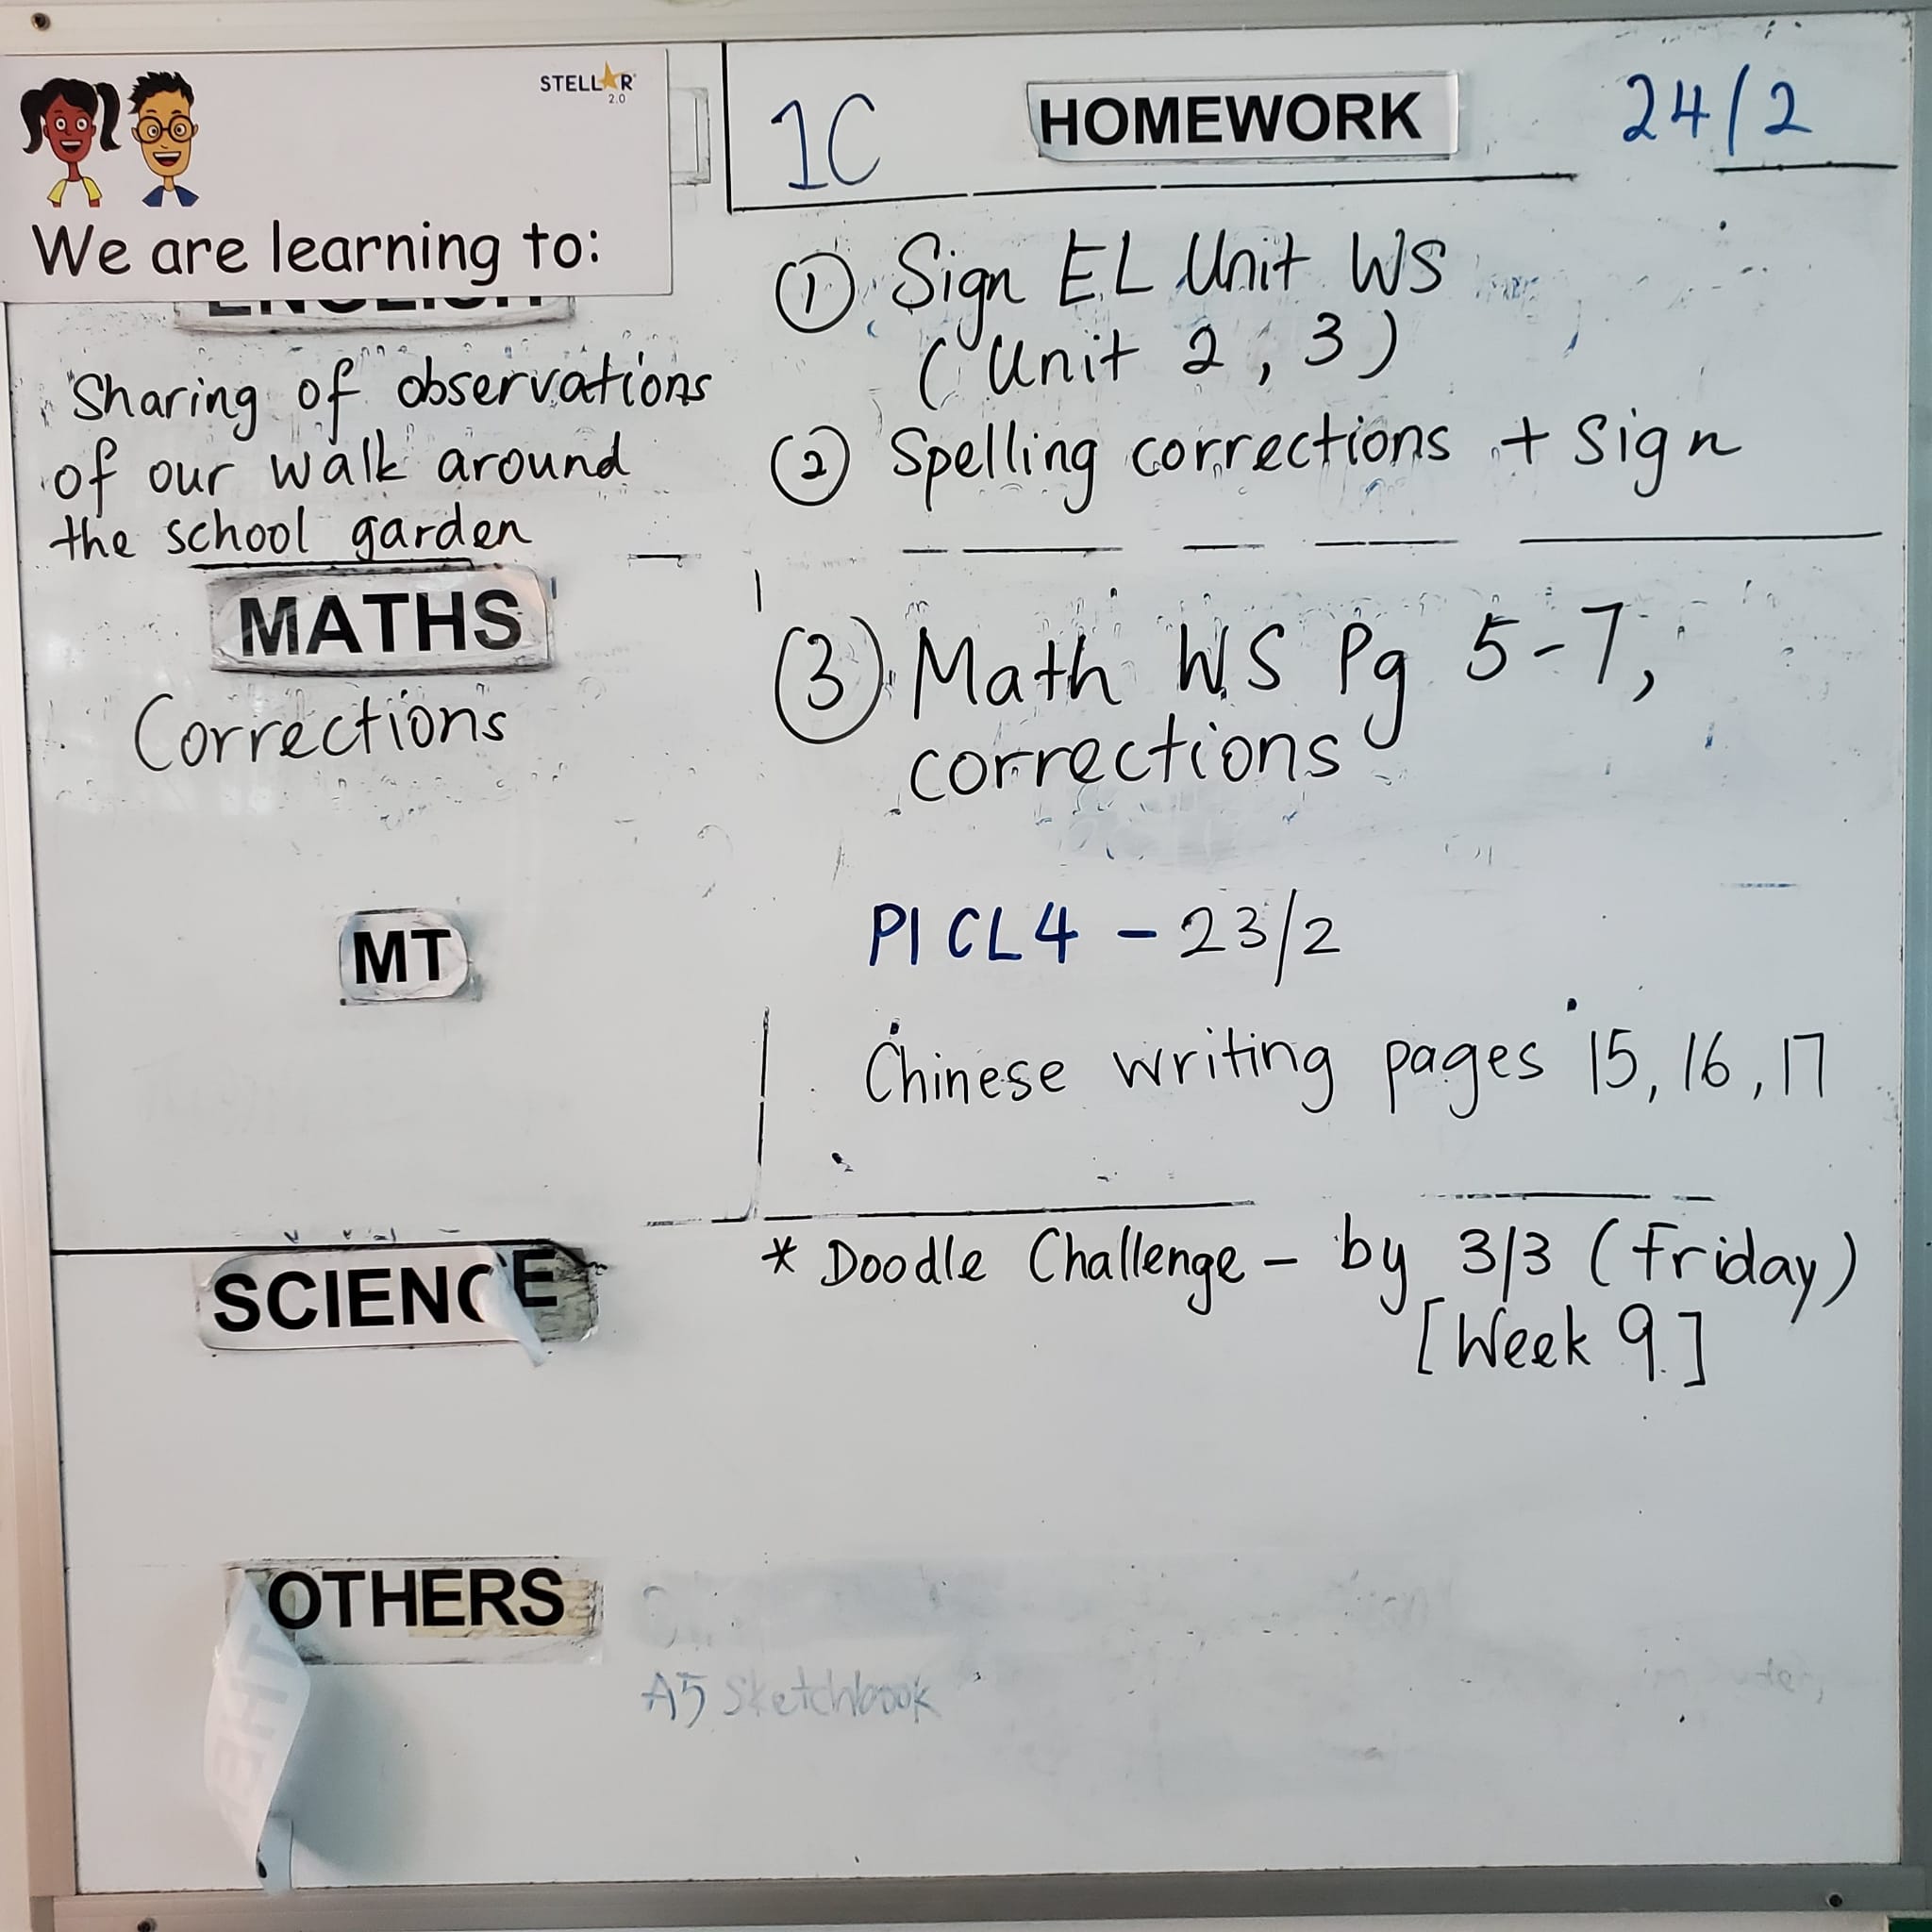 STELLAR
2.0
We are learning to:
ENGLISH
Sharing of observations
of our walk around
the school garden
MATHS
Corrections
MT
SCIENCE
OTHERS
1C HOMEWORK 24/2
① Sign EL Unit WS
(Unit 2, 3)
② Spelling corrections + Sign
③ Math WS Pg 5-7,
corrections
P1 CL4 - 23/2
Chinese writing pages 15, 16, 17
* Doodle Challenge - by 3/3 (Friday)
[Week 9]
A5 Sketchbook